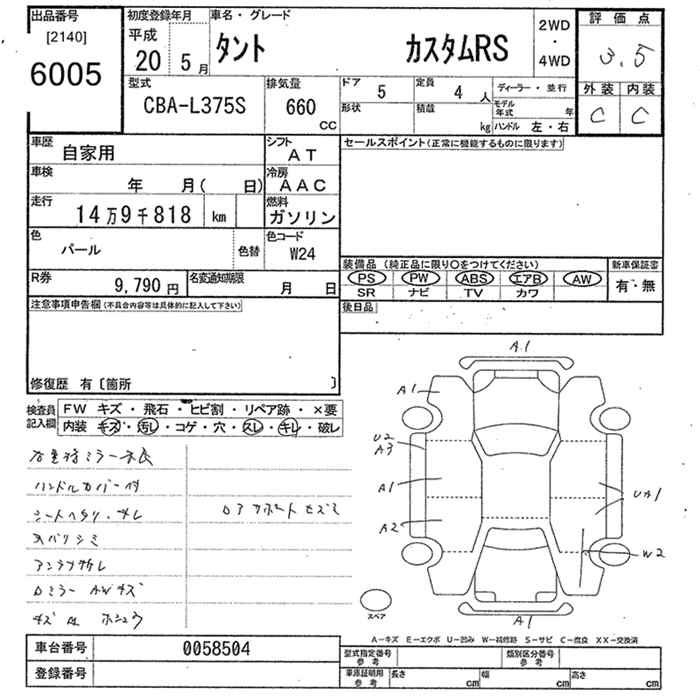 出品番号 初度登録年月 車名・グレード 2WD・4WD 評価点
[2140] 平成
6005 20 5月 タント カスタムRS 3.5
型式 排気量 ドア 5 定員 4人 ディーラー・並行 外装 内装
CBA-L375S 660cc 形状 積載 kg モデル年式 年 C C
ハンドル 左・右
車歴 自家用 シフト AT セールスポイント(正常に機能するものに限ります)
車検 年 月( 日) 冷房 AAC
走行 14万9千818 km 燃料 ガソリン
色 パール 色替 色コード W24
装備品 (純正品に限り○をつけてください) 新車保証書
PS PW ABS エアB AW 有・無
SR ナビ TV カワ
R券 9,790円 名変通知期限 月 日
後日品
注意事項申告欄(不具合内容等は具体的に記入して下さい)
修復歴 有〔箇所 〕
検査員記入欄 FW キズ・飛石・ヒビ割・リペア跡・×要
内装 キズ・汚レ・コゲ・穴・スレ・キレ・破レ
ハンドルカバー付
アンテナ
ミラー AWキズ
キズ
A1
A1
U2
A3
A1
A2
UA1
W2
A1
スペア
A-キズ E-エクボ U-凹み W-補修跡 S-サビ C-腐食 XX-交換済
車台番号 0058504 型式指定番号 参考 類別区分番号 参考
登録番号 車庫証明用 参考 長さ cm 幅 cm 高さ cm